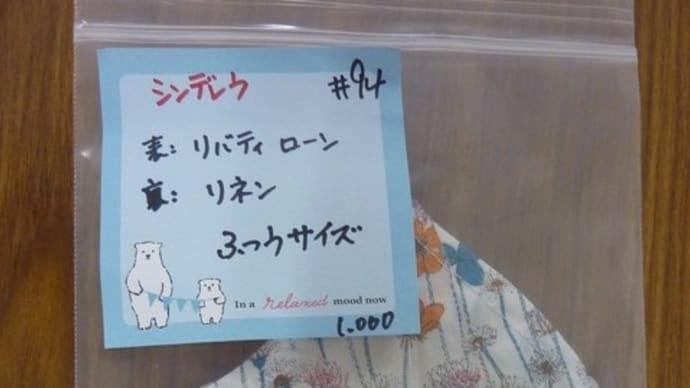 シンデレウ #94
表: リバティ ローン
裏: リネン
ふつうサイズ
In a relaxed mood now
1.000